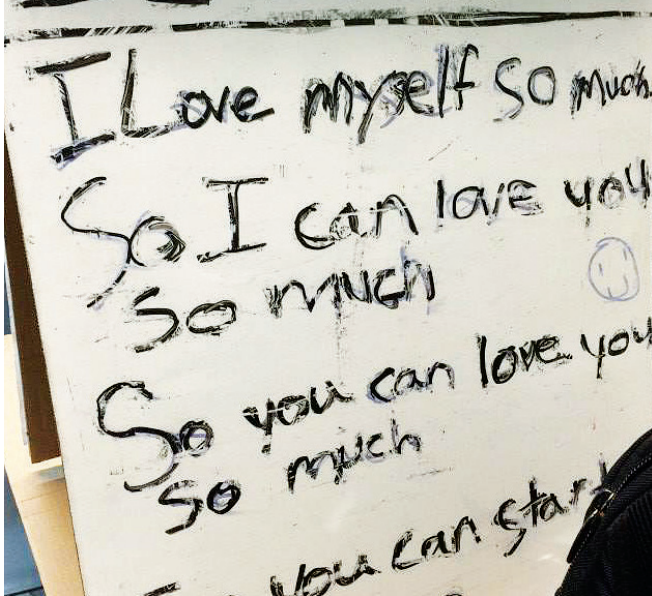 I Love myself so much
So I can love you
so much
So you can love you
so much
you can start